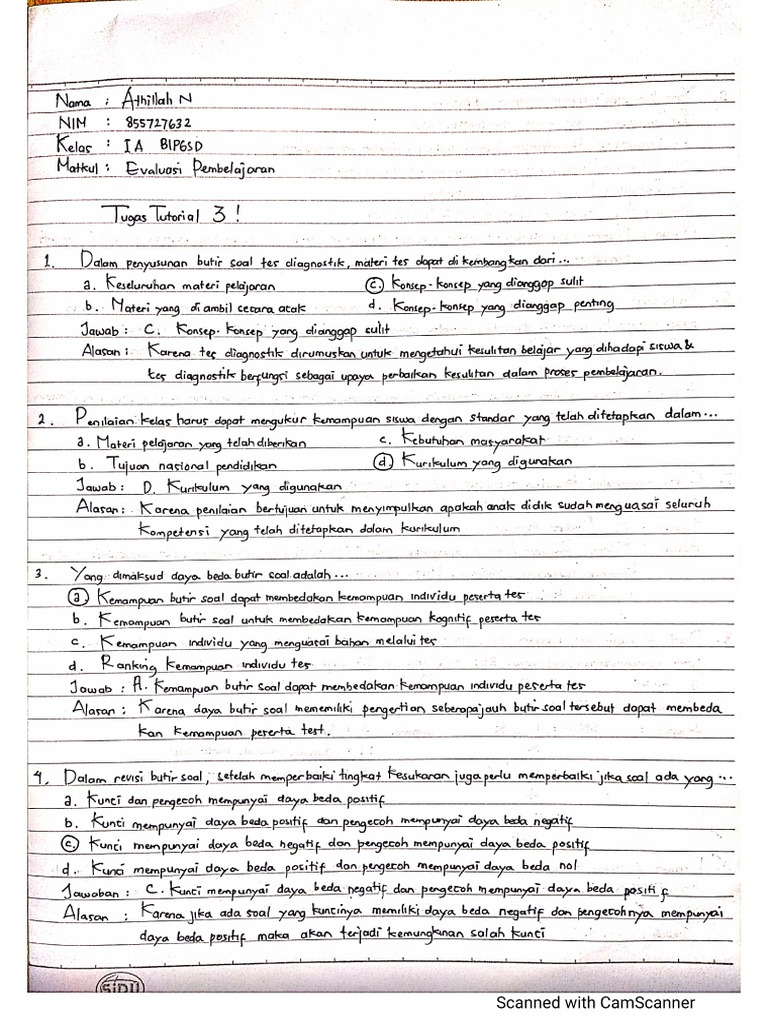 Nama : Athillah N
NIM : 855727632
Kelas : IA BIPGSD
Matkul : Evaluasi Pembelajaran
Tugas Tutorial 3 !
1. Dalam penyusunan butir soal tes diagnostik, materi tes dapat di kembangkan dari...
a. Keseluruhan materi pelajaran c. Konsep-konsep yang dianggap sulit
b. Materi yang di ambil secara acak d. Konsep-konsep yang dianggap penting
Jawab : C. Konsep-konsep yang dianggap sulit
Alasan : Karena tes diagnostik dirumuskan untuk mengetahui kesulitan belajar yang dihadapi siswa &
tes diagnostik berfungsi sebagai upaya perbaikan kesulitan dalam proses pembelajaran.
2. Penilaian kelas harus dapat mengukur kemampuan siswa dengan standar yang telah ditetapkan dalam...
a. Materi pelajaran yang telah diberikan c. Kebutuhan masyarakat
b. Tujuan nasional pendidikan d. Kurikulum yang digunakan
Jawab : D. Kurikulum yang digunakan
Alasan : Karena penilaian bertujuan untuk menyimpulkan apakah anak didik sudah menguasai seluruh
kompetensi yang telah ditetapkan dalam kurikulum
3. Yang dimaksud daya beda butir soal adalah...
a. Kemampuan butir soal dapat membedakan kemampuan individu peserta tes
b. Kemampuan butir soal untuk membedakan kemampuan kognitif peserta tes
c. Kemampuan individu yang menguasai bahan melalui tes
d. Ranking kemampuan individu tes
Jawab : A. Kemampuan butir soal dapat membedakan kemampuan individu peserta tes
Alasan : Karena daya butir soal mememiliki pengertian seberapa jauh butir soal tersebut dapat membeda
kan kemampuan peserta test.
4. Dalam revisi butir soal, setelah memperbaiki tingkat kesukaran juga perlu memperbaiki jika soal ada yang...
a. Kunci dan pengecoh mempunyai daya beda positif
b. Kunci mempunyai daya beda positif dan pengecoh mempunyai daya beda negatif
c. Kunci mempunyai daya beda negatif dan pengecoh mempunyai daya beda positif
d. Kunci mempunyai daya beda positif dan pengecoh mempunyai daya beda nol
Jawaban : C. Kunci mempunyai daya beda negatif dan pengecoh mempunyai daya beda positif
Alasan : Karena jika ada soal yang kuncinya memiliki daya beda negatif dan pengecohnya mempunyai
daya beda positif maka akan terjadi kemungkinan salah kunci
SIDU
Scanned with CamScanner